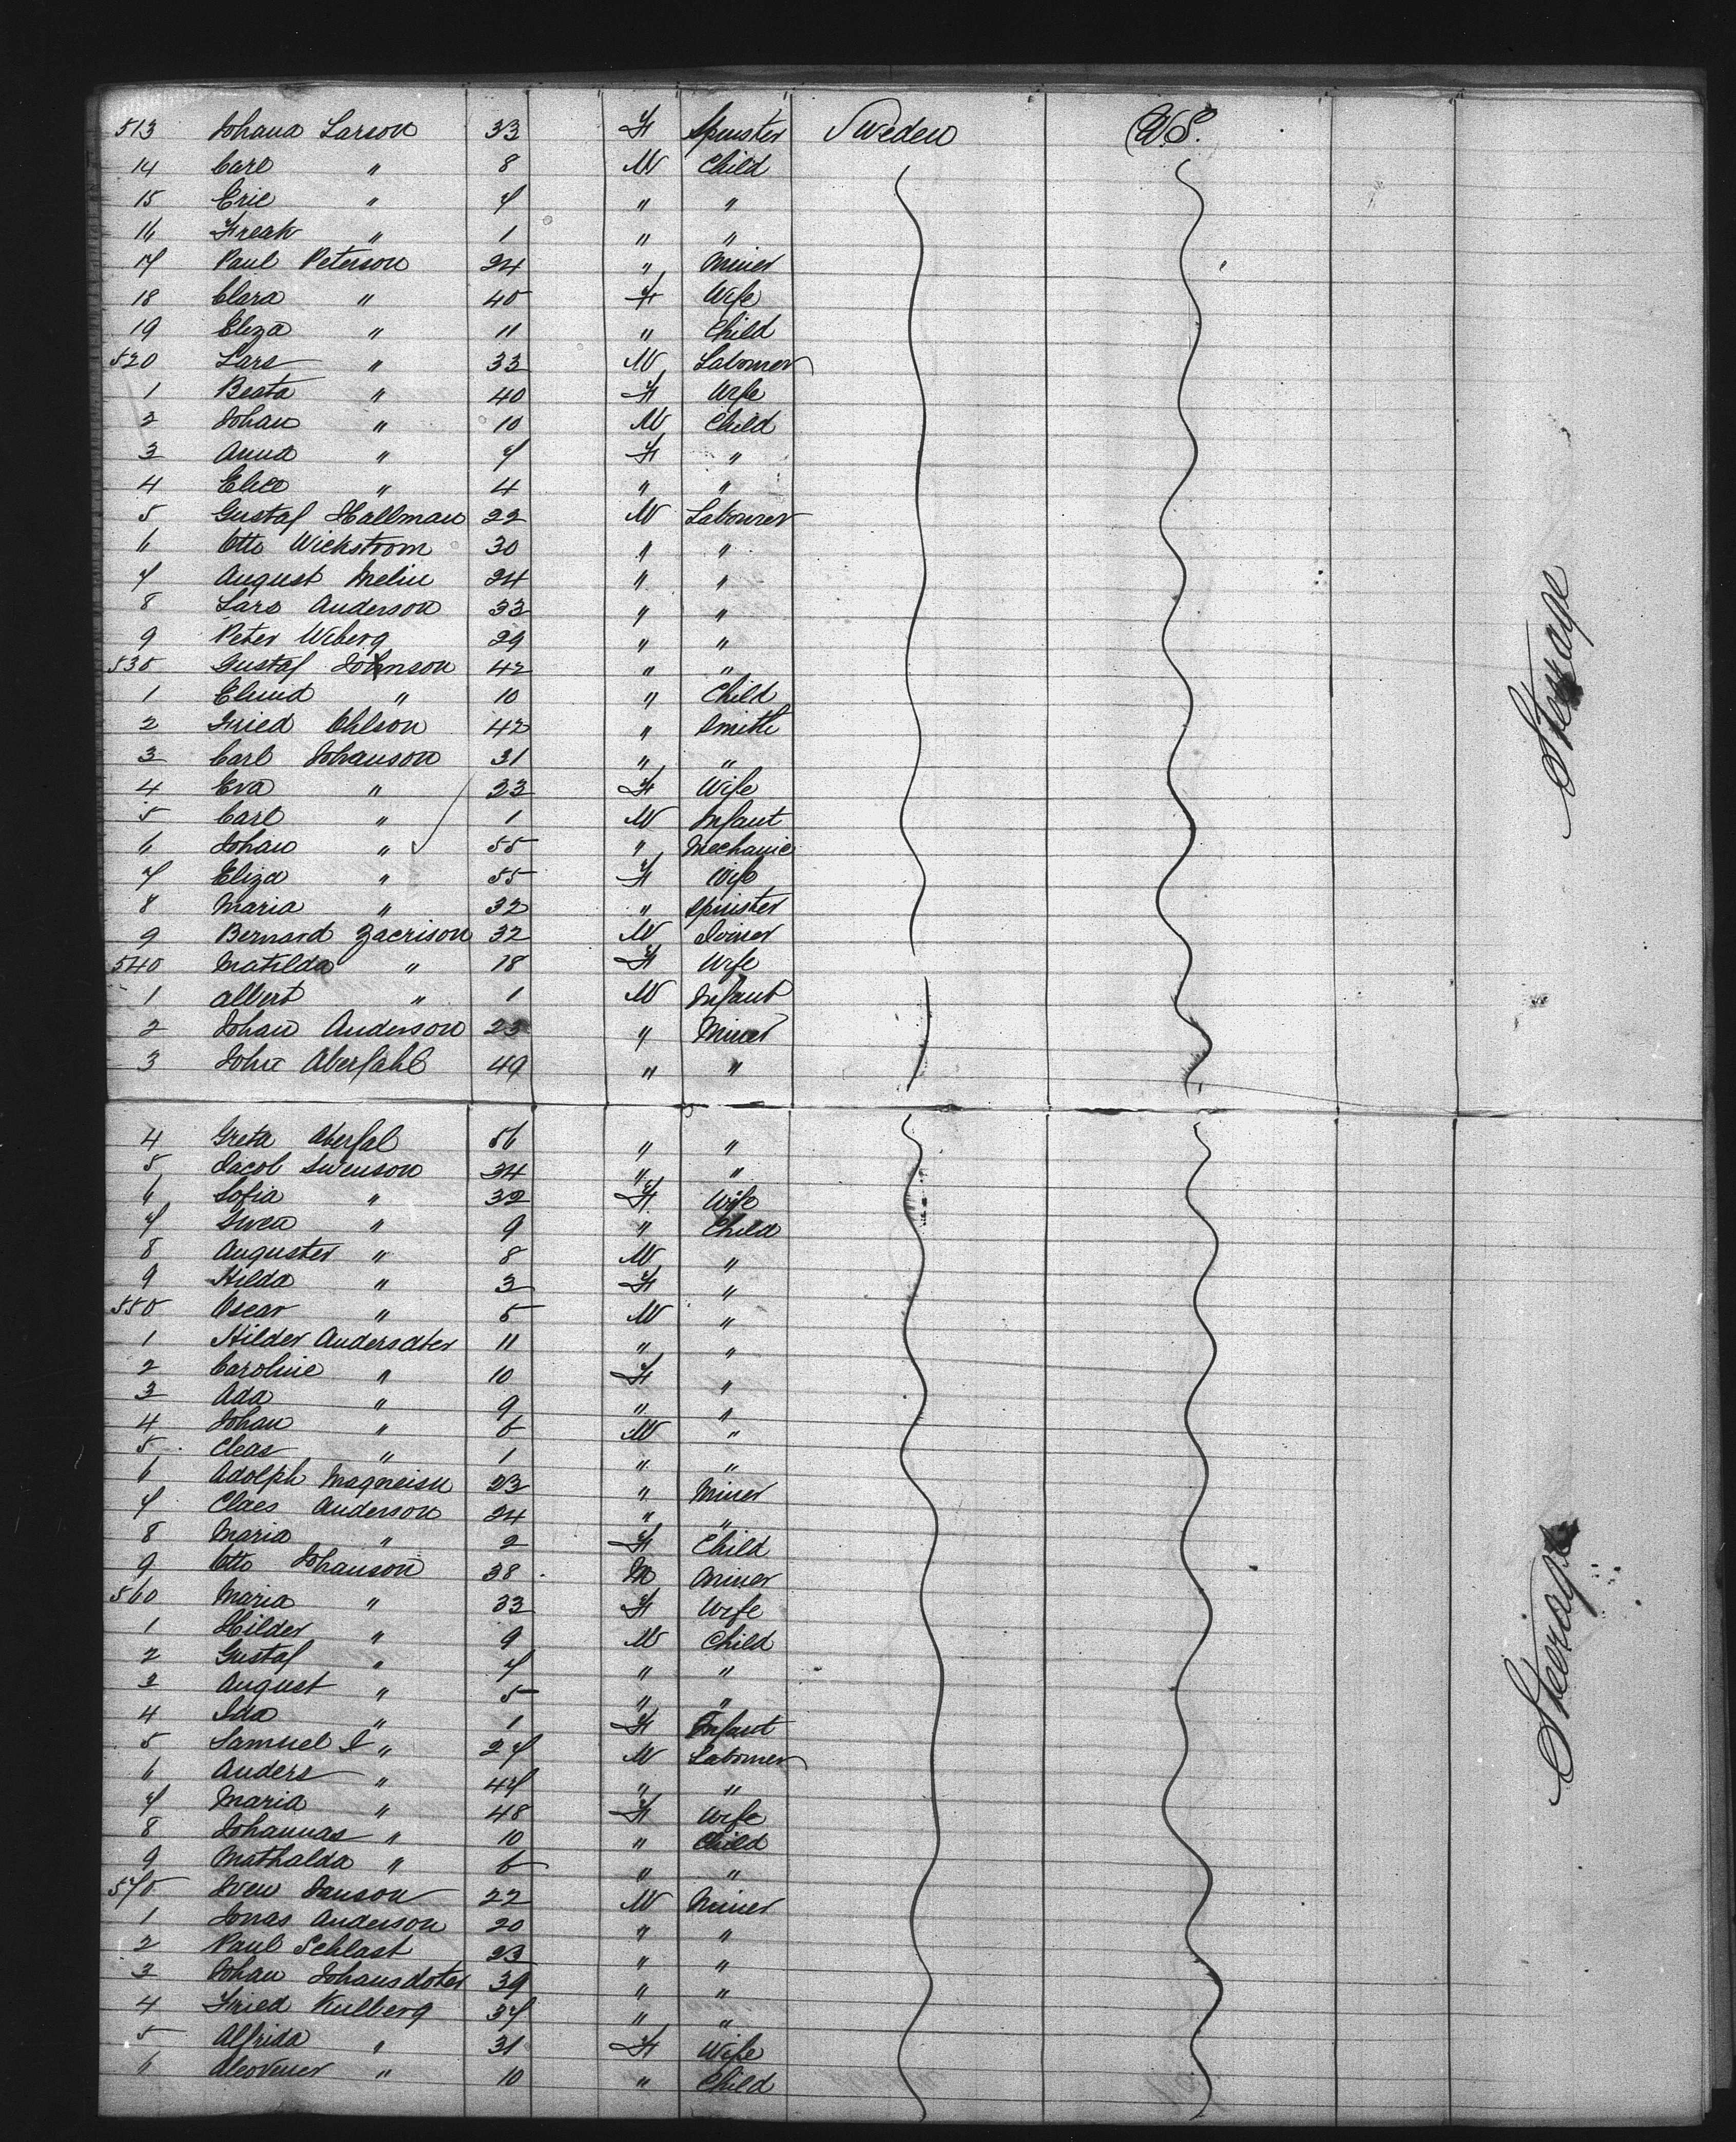 513 Johana Larson 33 F Spinster Sweden U.S.
14 Carl " 8 M Child
15 Eric " 7 " "
16 Freak " 1 " "
17 Paul Peterson 24 " Miner
18 Clara " 40 F Wife
19 Eliza " 11 " Child
520 Lars " 33 M Labourer
1 Beata " 40 F Wife
2 Johan " 10 M Child
3 Anna " 7 F "
4 " 4 " "
5 Gustaf Hallman 22 M Labourer
6 Otto Wickstrom 30 " "
7 August Melin 24 " "
8 Lars Anderson 33 " "
9 Peter Wiberg 29 " "
530 Gustaf Johnson 42 " "
1 " 10 " Child
2 Fried Ohlson 42 " Smith
3 Carl Johanson 31 " "
4 Eva " 23 F Wife
5 Carl " 1 M Infant
6 Johan " 55 " Mechanic
7 Eliza " 55 F Wife
8 Maria " 32 " Spinster
9 Bernard Zacrison 32 M Joiner
540 Matilda " 18 F Wife
1 Albert " 1 M Infant
2 Johan Anderson 23 " Miner
3 John Aberfahl 49 " "
4 Greta Aberfal 56 " "
5 Jacob Swenson 34 " "
6 Sofia " 32 F Wife
7 Swen " 9 " Child
8 Auguster " 8 M "
9 Hilda " 3 F "
550 Oscar " 5 M "
1 Hilder Andersdter 11 " "
2 Caroline " 10 F "
3 Ada " 9 " "
4 Johan " 6 M "
5 Cleas " 1 " "
6 Adolph 23 " Miner
7 Claes Anderson 24 " "
8 Maria " 2 F Child
9 Otto Johanson 38 M Miner
560 Maria " 33 F Wife
1 Hilder " 9 M Child
2 Gustaf " 7 " "
3 August " 5 " "
4 Ida " 1 F Infant
5 Samuel J " 27 M Labourer
6 Anders " 47 " "
7 Maria " 48 F Wife
8 Johannas " 10 " Child
9 Mathalda " 6 " "
570 Sven Janson 22 M Miner
1 Jonas Anderson 20 " "
2 Paul Schlast 23 " "
3 Johan Johansdoter 39 " "
4 Fried Kulberg 37 " "
5 Alfrida " 31 F Wife
6 " 10 " Child
Steerage
Steerage